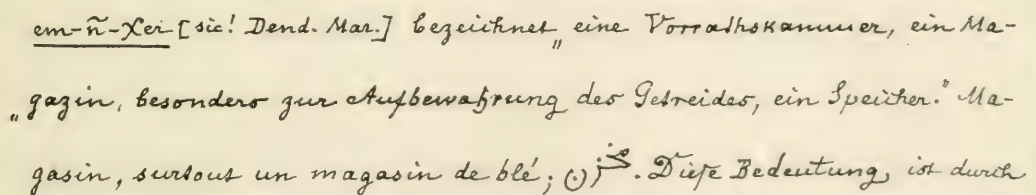 em-n̄-χer [sic! Dend. Mar.] bezeichnet „eine Vorrathskammer, ein Ma-
„gazin, besonders zur Aufbewahrung des Getreides, ein Speicher.“ Ma-
gasin, surtout un magasin de blé; مخزن. Diese Bedeutung, ist durch